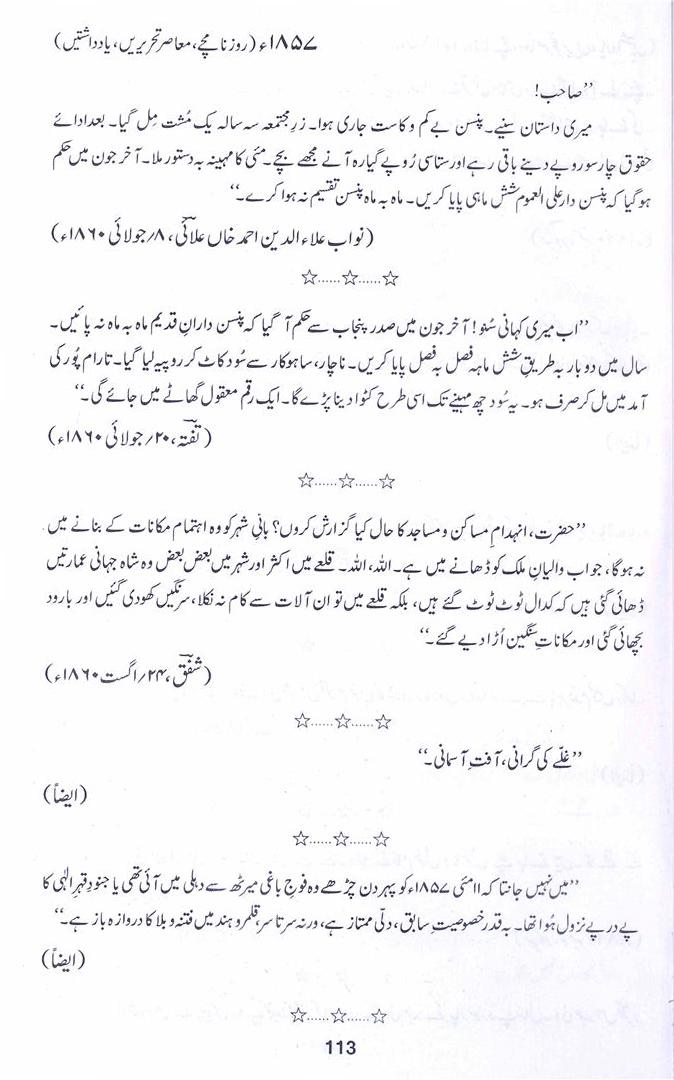 ۱۸۵۷ء (روزنامچے، معاصر تحریریں، یادداشتیں)
’’صاحب!
میری داستان سنیے۔ پنسن بے کم و کاست جاری ہوا۔ زرِ مجتمعہ سہ سالہ یک مُشت مِل گیا۔ بعد ادائے
حقوق چار سو روپے دینے باقی رہے اور ستاسی رُوپے گیارہ آنے مجھے بچے۔ مئی کا مہینہ بہ دستور ملا۔ آخر جون میں حکم
ہو گیا کہ پنسن دار علی العموم شش ماہی پایا کریں۔ ماہ بہ ماہ پنسن تقسیم نہ ہوا کرے۔‘‘
(نواب علاء الدین احمد خاں علائی، ۸؍جولائی ۱۸۶۰ء)
☆......☆......☆
’’اب میری کہانی سُنو! آخر جون میں صدر پنجاب سے حکم آ گیا کہ پنسن دارانِ قدیم ماہ بہ ماہ نہ پائیں۔
سال میں دو بار بہ طریقِ شش ماہہ فصل بہ فصل پایا کریں۔ ناچار، ساہوکار سے سُود کاٹ کر روپیہ لیا گیا۔ تا رام پُور کی
آمد میں مل کر صرف ہو۔ یہ سُود چھ مہینے تک اسی طرح کٹوا دینا پڑے گا۔ ایک رقم معقول گھاٹے میں جائے گی۔‘‘
(تفتہ، ۲۰؍جولائی ۱۸۶۰ء)
☆......☆......☆
’’حضرت، انہدامِ مساکن و مساجد کا حال کیا گزارش کروں؟ بانیِ شہر کو وہ اہتمام مکانات کے بنانے میں
نہ ہوگا، جو اب والیانِ ملک کو ڈھانے میں ہے۔ اللہ، اللہ۔ قلعے میں اکثر اور شہر میں بعض بعض وہ شاہ جہانی عمارتیں
ڈھائی گئی ہیں کہ کدال ٹوٹ ٹوٹ گئے ہیں، بلکہ قلعے میں تو ان آلات سے کام نہ نکلا، سرنگیں کھودی گئیں اور بارود
بچھائی گئی اور مکاناتِ سنگین اُڑا دیے گئے۔‘‘
(شفق، ۲۴؍اگست ۱۸۶۰ء)
☆......☆......☆
’’غلّے کی گرانی، آفتِ آسمانی۔‘‘
(ایضاً)
☆......☆......☆
’’میں نہیں جانتا کہ ۱۱ مئی ۱۸۵۷ء کو پہر دن چڑھے وہ فوج باغی میرٹھ سے دہلی میں آئی تھی یا جنودِ قہرِ الٰہی کا
پے در پے نزول ہُوا تھا۔ بہ قدر خصوصیت سابق، دلّی ممتاز ہے، ورنہ سرتاسر قلمرو ہند میں فتنہ و بلا کا دروازہ باز ہے۔‘‘
(ایضاً)
☆......☆......☆
113